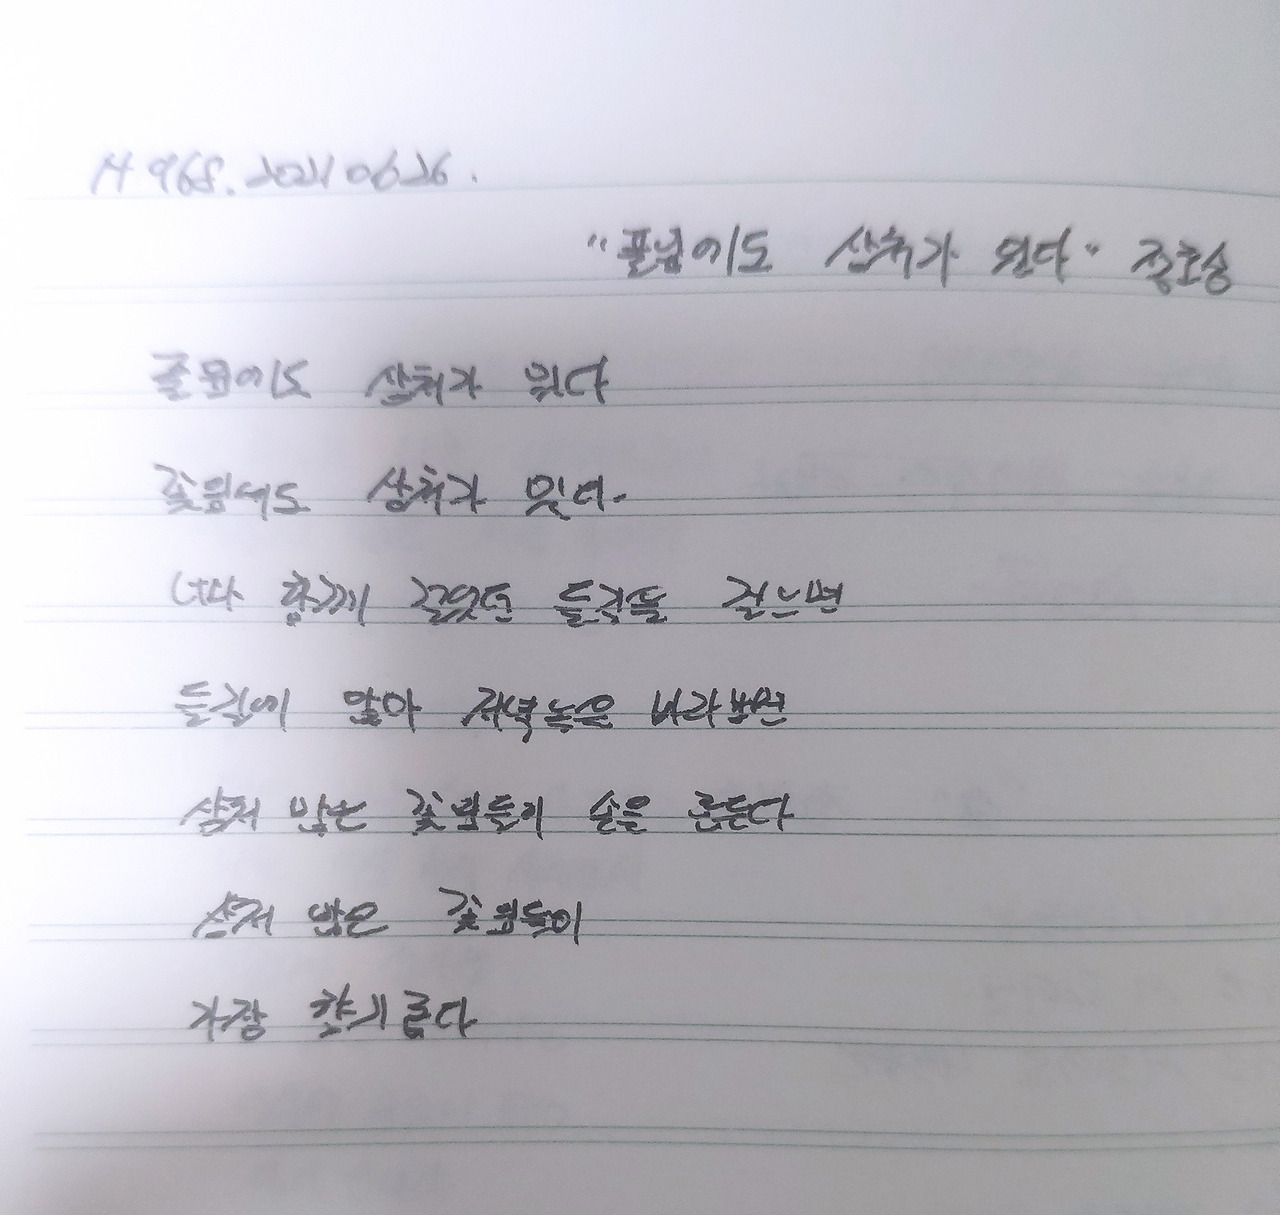 N 968. 20210626.
"풀잎에도 상처가 있다" 정호승
풀잎에도 상처가 있다
꽃잎에도 상처가 있다.
너와 함께 걸었던 들길을 걸으면
들길에 앉아 저녁놀을 바라보면
상처 많은 꽃잎들이 손을 흔든다
상처 많은 꽃잎들이
가장 향기롭다